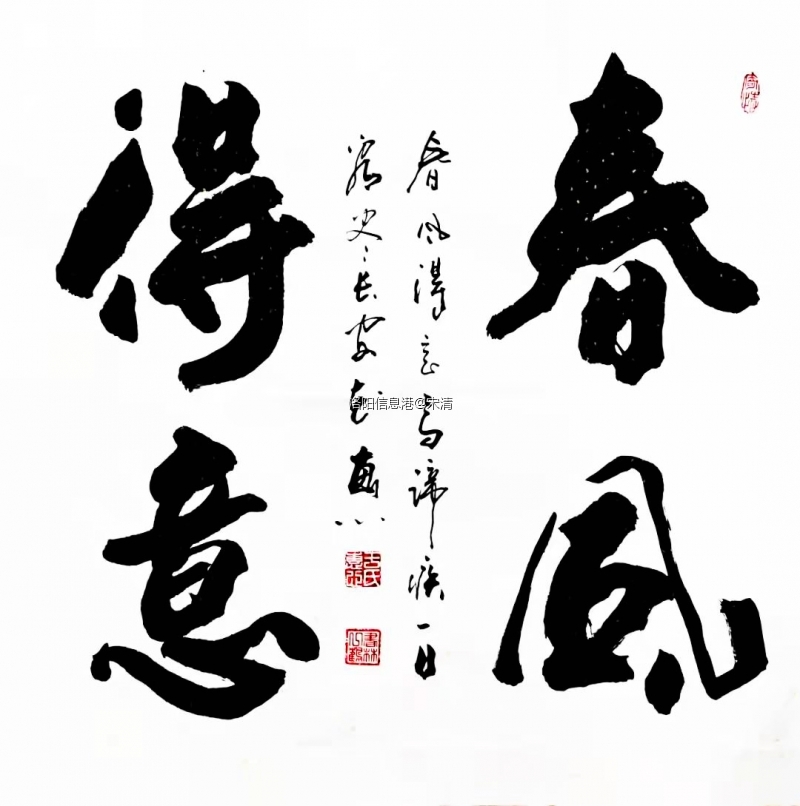 春風
得意
春风得意马蹄疾一日
看尽长安花
洛阳信息港@宋清